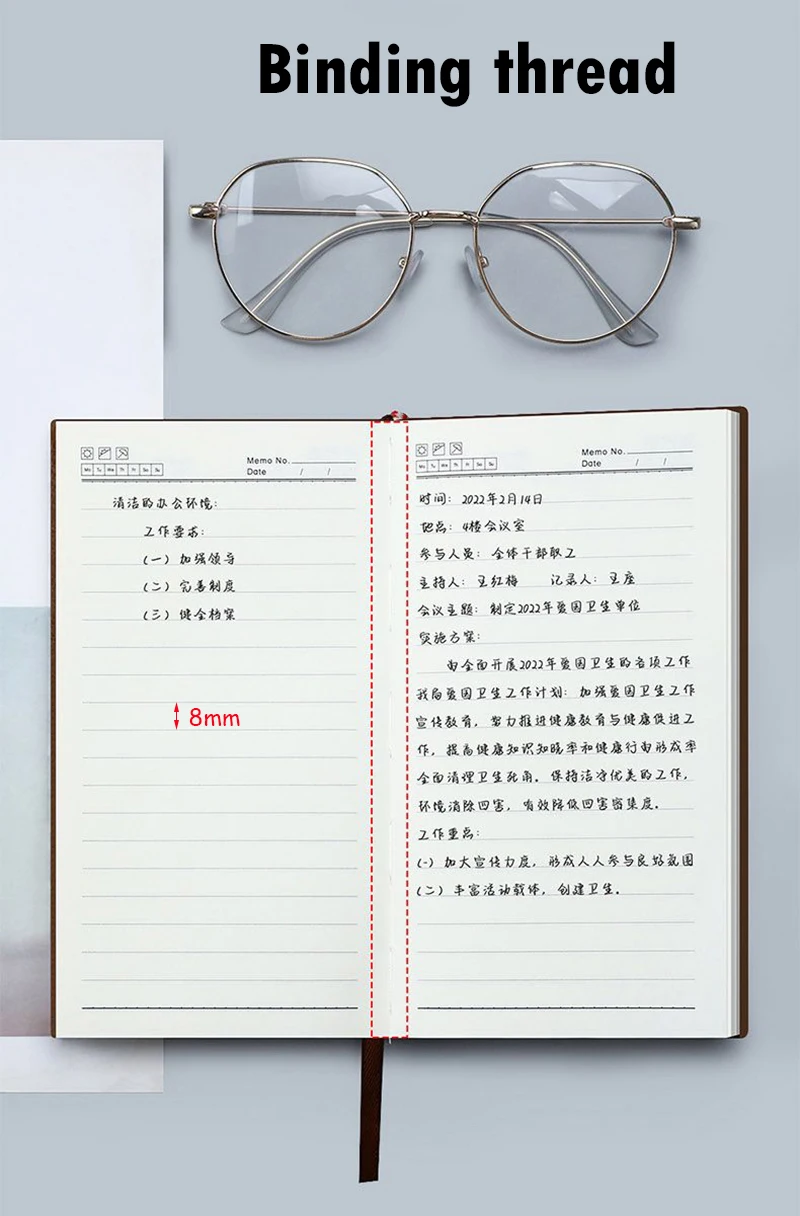 Binding thread
Memo No.
Date / /
Mo Tu We Th Fr Sa Su
清洁的办公环境:
工作要求:
(一) 加强领导
(二) 完善制度
(三) 健全档案
8mm
Memo No.
Date / /
Mo Tu We Th Fr Sa Su
时间: 2022年2月14日
地点: 4楼会议室
参与人员: 全体干部职工
主持人: 王红梅 记录人: 王座
会议主题: 制定2022年爱国卫生单位
实施方案:
由全面开展2022年爱国卫生的各项工作
我局爱国卫生工作计划: 加强爱国卫生工作
宣传教育, 努力推进健康教育与健康促进工
作, 提高健康知识知晓率和健康行由形成率
全面清理卫生死角。保持洁净优美的工作,
环境消除四害, 有效降低四害密集度。
工作重点:
(一) 加大宣传力度, 形成人人参与良好氛围
(二) 丰富活动载体, 创建卫生。